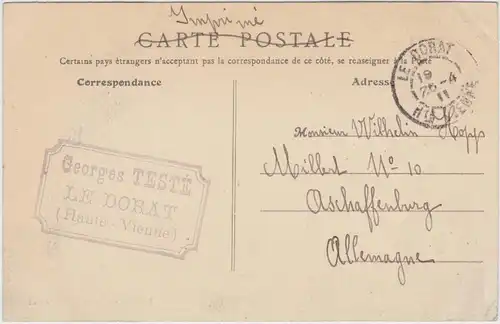 Imprimé
CARTE POSTALE
Certains pays étrangers n'acceptant pas la correspondance de ce côté, se renseigner à la Poste
Correspondance
Adresse
LE DORAT
19
25-4
11
HTE VIENNE
Monsieur Wilhelm Hopps
Millerst No 10
Aschaffenburg
Allemagne
Georges TESTÉ
LE DORAT
(Haute-Vienne)